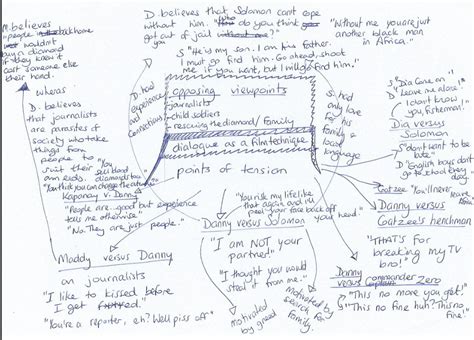 M. believes
"people in back home
wouldn't
buy a diamond
if they knew it
cost someone else
their hand.
whereas
D. believes
that journalists
are parasites of
society who take
things from
people to
suit their
own ends.
D. believes that Solomon can't cope
without him. "Who do you think
got out of jail
S "He'd my son. I am the father.
I must go find him. Go ahead shoot
me if you want, but I will go find him."
"Without me you are just
another black man
in Africa."
D. had
experience
and
connections
opposing viewpoints
journalists
child soldiers
rescuing the diamond / family
dialogue as a film technique
points of tension
S. had
only love
for his
family &
local
language
S "Dia Come on"
D "Leave me alone!
I don't know
you, fisherman!
Dia versus
Solomon
S "don't want to be
late"
D "English boys don't
go to school every
day.
Coetzee "You'll never
leave Africa"
Danny versus
Coetzee's henchman
"You sell blood
diamonds too"
"You think you can change the
Kapanay v. Danny
"People are good but experience
tells me otherwise"
"No. They are just people."
"You risk my life like
that again and I'll
peel your face back off
your head."
Danny versus Solomon
"I am NOT your
partner!"
"I thought you would
steal it from me."
motivated
by greed
Motivated by
search for
family.
Maddy versus Danny
on journalists
"I like to kissed before
I get
"You're a reporter, eh? Well piss off"
"THAT'S for
breaking my TV
bro!"
Danny
versus commander Zero
"This no more you get!"
"This no fine huh? This no
fine!"